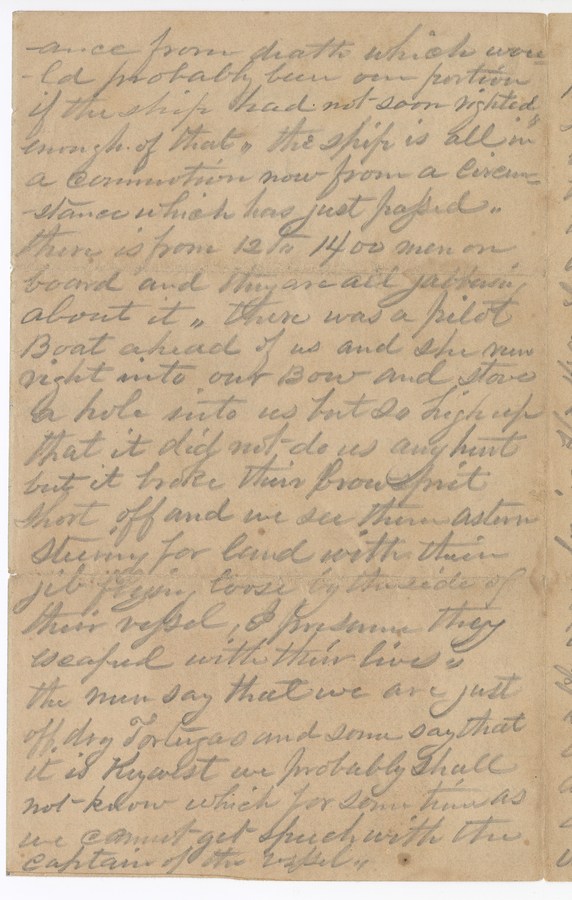 -ance from death which wou-
-ld probably been our portion
if the ship had not soon righted
enough of that,, the ship is all in
a commotion now from a circum-
-stance which has just passed,,
there is from 12 to 1400 men on
board and they are all jabbering
about it,, there was a pilot
Boat ahead of us and she run
right into our Bow and stove
a hole into us but so high up
that it did not do us any hurt
but it broke their Brow Sprit
short off and we see them astern
steering for land with their
jib flying loose by the side of
their vessel, I presume they
escaped with their lives,,
the men say that we are just
off dry Tortugas and some say that
it is Keywest we probably shall
not know which for some time as
we cannot get speech with the
captain of the vessel,,